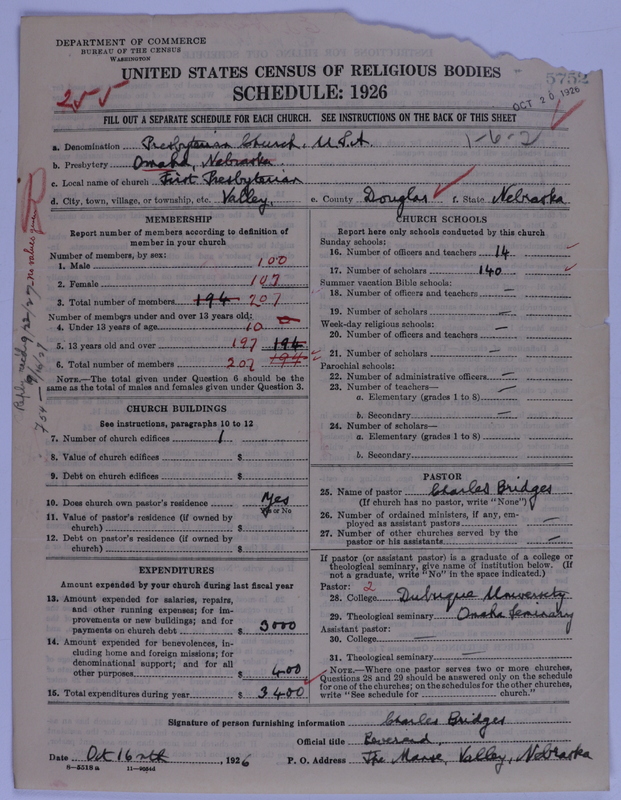 DEPARTMENT OF COMMERCE
BUREAU OF THE CENSUS
WASHINGTON
UNITED STATES CENSUS OF RELIGIOUS BODIES
SCHEDULE: 1926
5752
OCT 20 1926
255
FILL OUT A SEPARATE SCHEDULE FOR EACH CHURCH. SEE INSTRUCTIONS ON THE BACK OF THIS SHEET
1-6-2
a. Denomination Presbyterian Church, U.S.A.
b. Presbytery Omaha, Nebraska.
c. Local name of church First Presbyterian
d. City, town, village, or township, etc. Valley, e. County Douglas f. State Nebraska
MEMBERSHIP
Report number of members according to definition of
member in your church
Number of members, by sex:
1. Male 100
2. Female 107
3. Total number of members 194 207
Number of members under and over 13 years old:
4. Under 13 years of age 10
5. 13 years old and over 197 194
6. Total number of members 207 194
NOTE.—The total given under Question 6 should be
same as the total of males and females given under Question 3.
CHURCH BUILDINGS
See instructions, paragraphs 10 to 12
7. Number of church edifices 1
8. Value of church edifices $
9. Debt on church edifices $
10. Does church own pastor's residence Yes
Yes or No
11. Value of pastor's residence (if owned by
church) $
12. Debt on pastor's residence (if owned by
church) $
EXPENDITURES
Amount expended by your church during last fiscal year
13. Amount expended for salaries, repairs,
and other running expenses; for im-
provements or new buildings; and for
payments on church debt $ 3000
14. Amount expended for benevolences, in-
cluding home and foreign missions; for
denominational support; and for all
other purposes $ 400
15. Total expenditures during year $ 3400
CHURCH SCHOOLS
Report here only schools conducted by this church
Sunday schools:
16. Number of officers and teachers 14
17. Number of scholars 140
Summer vacation Bible schools:
18. Number of officers and teachers —
19. Number of scholars —
Week-day religious schools:
20. Number of officers and teachers —
21. Number of scholars —
Parochial schools:
22. Number of administrative officers —
23. Number of teachers—
a. Elementary (grades 1 to 8) —
b. Secondary —
24. Number of scholars—
a. Elementary (grades 1 to 8)
b. Secondary
PASTOR
25. Name of pastor Charles Bridges
(If church has no pastor, write "None")
26. Number of ordained ministers, if any, em-
ployed as assistant pastors —
27. Number of other churches served by the
pastor or his assistants —
If pastor (or assistant pastor) is a graduate of a college or
theological seminary, give name of institution below. (If
not a graduate, write "No" in the space indicated.)
Pastor: 2
28. College Dubuque University
29. Theological seminary Omaha Seminary
Assistant pastor:
30. College —
31. Theological seminary —
NOTE.—Where one pastor serves two or more churches,
Questions 28 and 29 should be answered only on the schedule
for one of the churches; on the schedules for the other churches,
write "See schedule for church."
Signature of person furnishing information Charles Bridges
Official title Reverend,
Date Oct 16th, 1926 P. O. Address The Manse, Valley, Nebraska
8—5518a 11—90544